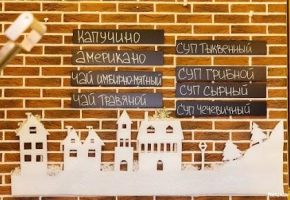 КАПУЧИНО
АМЕРИКАНО
ЧАЙ ИМБИРНО-МЯТНЫЙ
ЧАЙ ТРАВЯНОЙ
СУП ТЫКВЕННЫЙ
СУП ГРИБНОЙ
СУП СЫРНЫЙ
СУП ЧЕЧЕВИЧНЫЙ